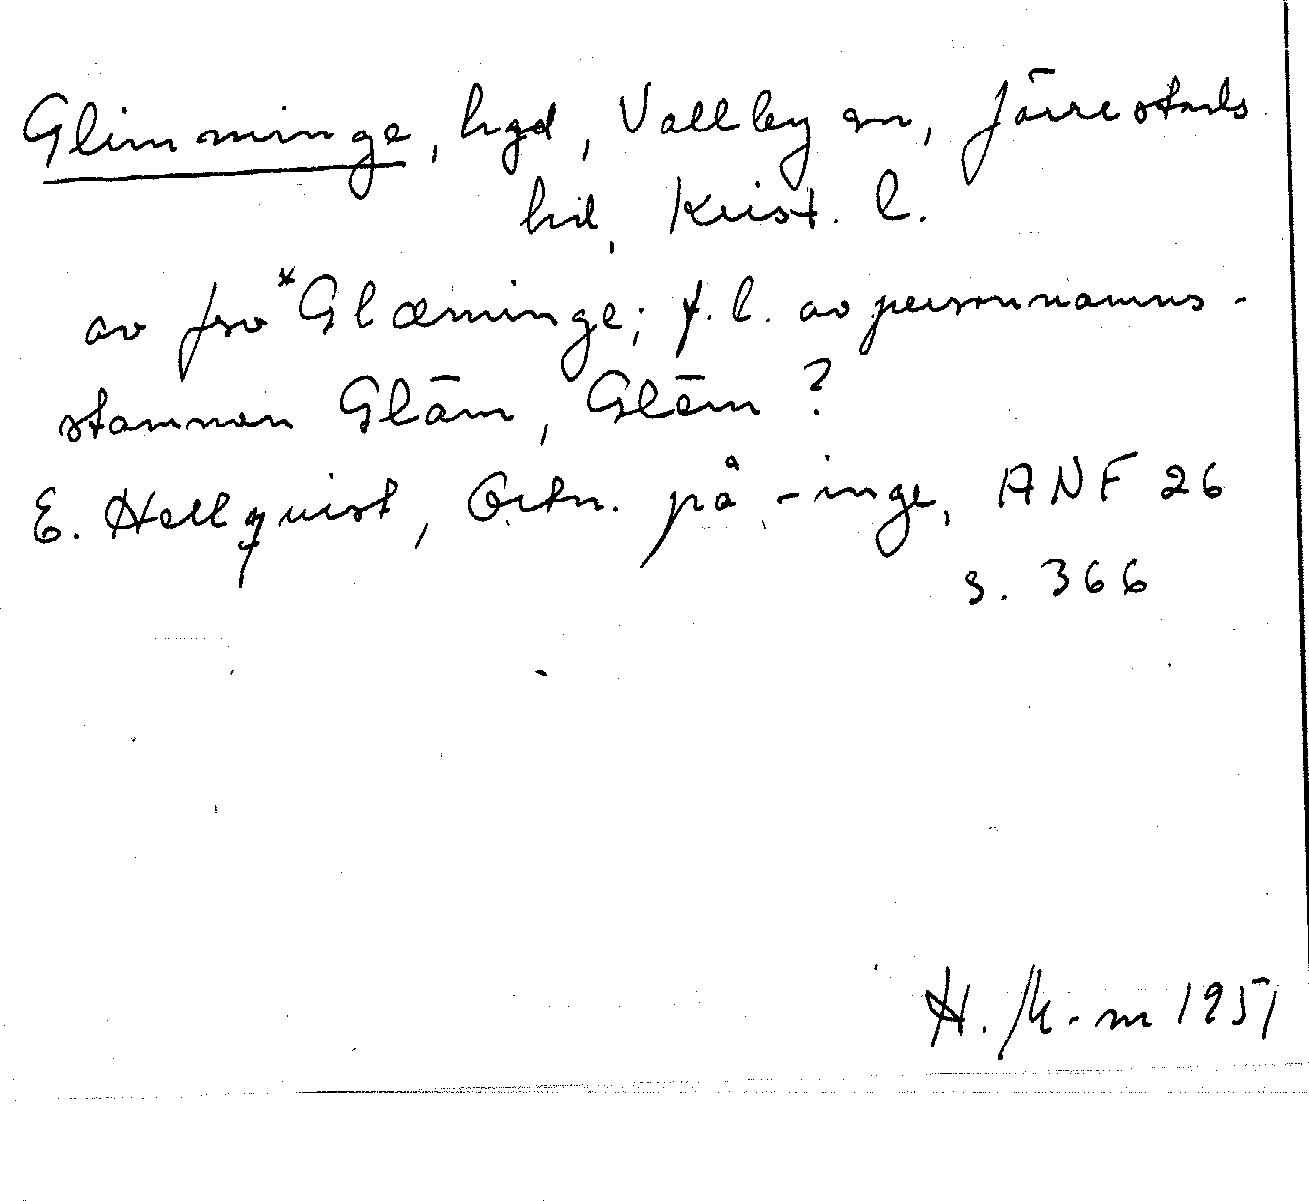 Glimminge, hgd, Vallby sn, Järrestads
hd, Krist. l.
av fsv *Glæminge; f. l. av personnamns-
stammen Glām, Glēm ?
E. Hellquist, Ortn. på -inge, ANF 26
s. 366
H. M-m 1951